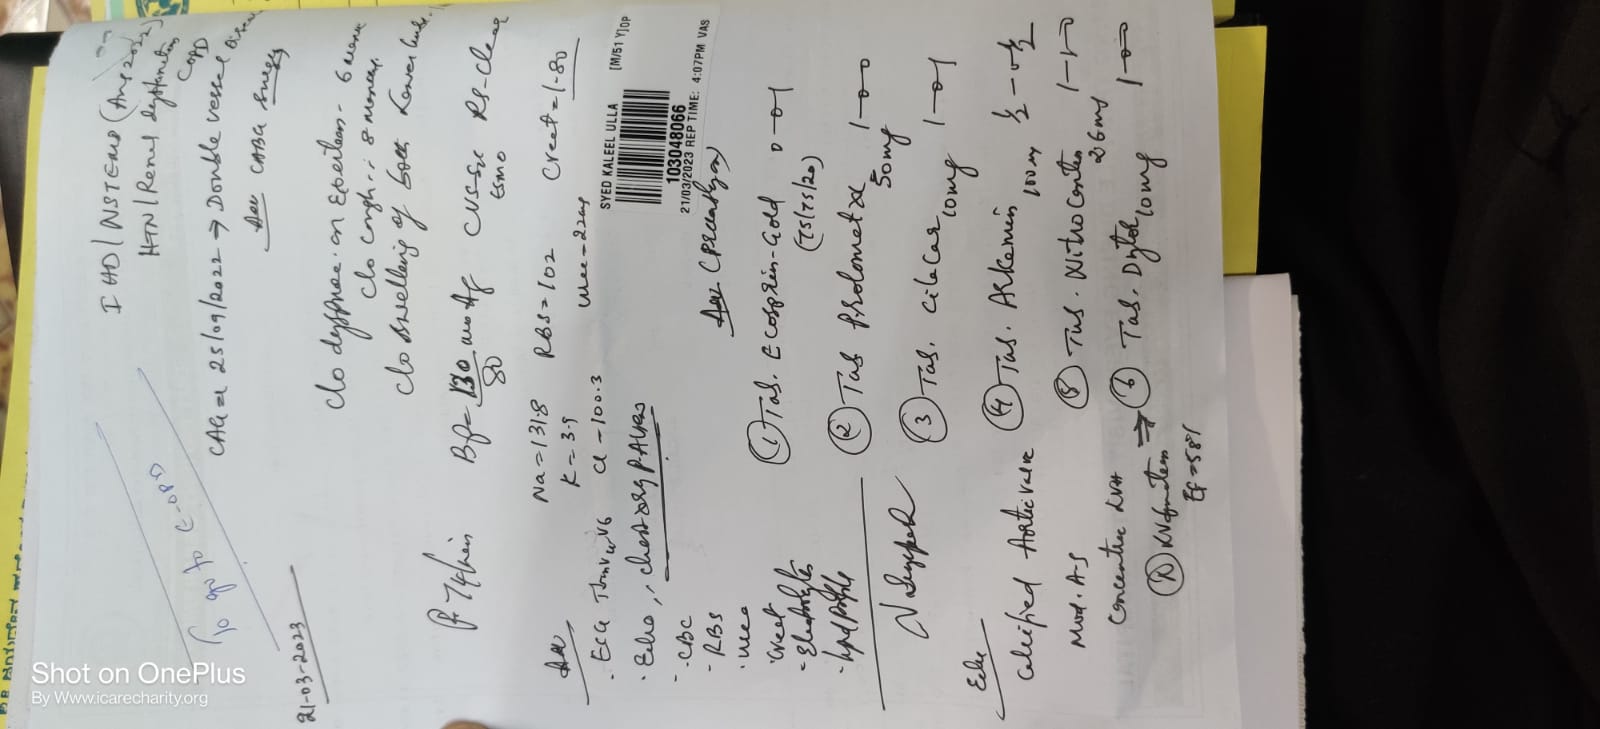 IHD/NSTEMI (Aug 2022)
HTN/Renal dysfunction
COPD
CAG on 25/09/2022 → Double vessel Disease
Adv CABG
To go to C-OPD
21-03-2023
C/o dyspnoea on Exertion - 6
C/o cough
C/o swelling of both Lower limbs
P-76/min
BP = 130
80
mmHg
CVS-S1S2
RS-clear
ESM
Na = 131.8
RBS = 102
Creat = 1.80
K = 3.9
Cl - 100.3
Urea - 22mg
SYED KALEEL ULLA
[M/51 Y]OP
103048066
21/03/2023 REP TIME: 4:07PM VAS
Adv
- ECG
- Echo, chest xray PA view
- CBC
- RBS
- Urea
- Creat
- Electrolytes
- Lipid profile
Adv
① Tab. Ecosprin-Gold 0-0-1
(75/75/20)
② Tab Prolomet XL 1-0-0
50mg
③ Tab. Cilacar 1-0-1
10mg
④ Tab. Arkamin ½-0-½
100
⑤ Tab. Nitrocontin 1-1-0
2.6mg
⑥ Tab. Dytor 1-0-0
10mg
Echo
Calcified Aortic Valve
Mod. AS
Concentric LVH
Ⓝ LV function
EF = 58%
Shot on OnePlus
By Www.icarecharity.org